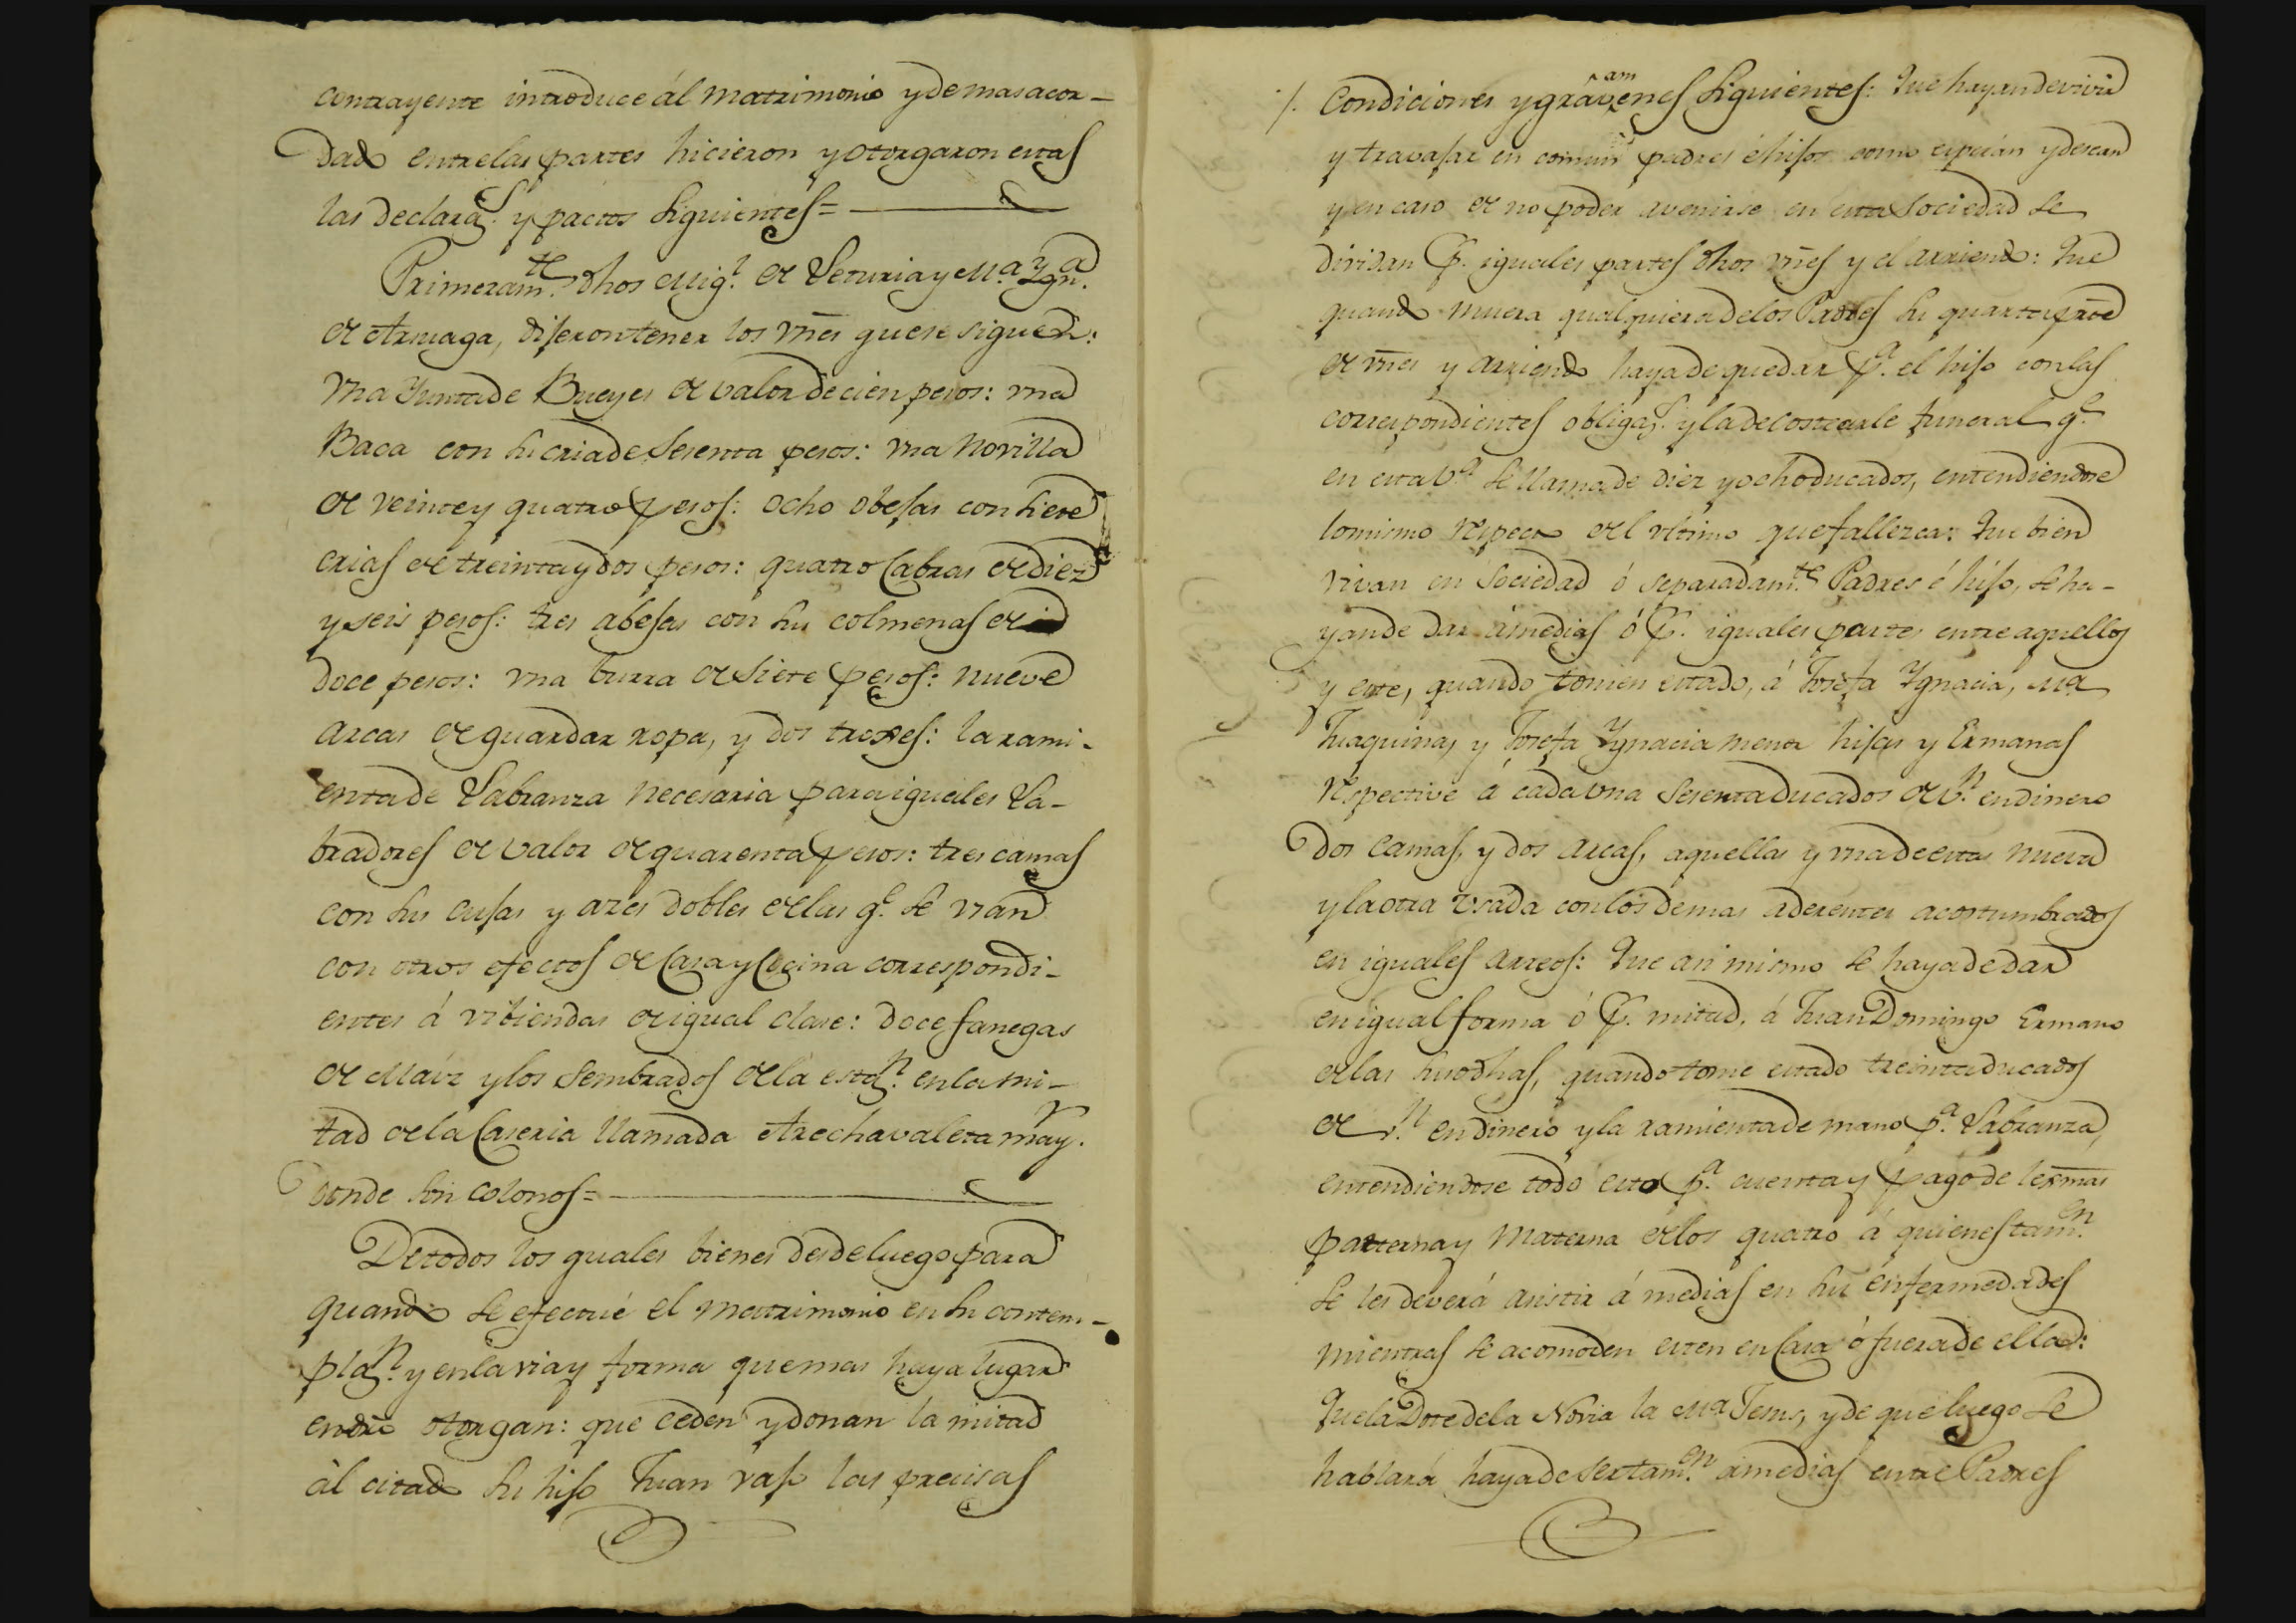 contrayente introduce ál matrimonio y demas acor-
dado entre las partes hicieron y otorgaron estas
las declaras. y pactos siguientes=
Primeramte. dhos Migl. de Leturia y Ma. Ygna.
de Arriaga, dijeron tener los vnes que se siguen:
vna Yunta de Bueyes de valor de cien pesos: vna
Baca con su cria de sesenta pesos: vna Novilla
de veinte y quatro pesos: ocho obejas con siete
crias de treinta y dos pesos: quatro Cabras de diez
y seis pesos: tres abejas con su colmenas de
doce pesos: vna burra de siete pesos: nueve
arcas de guardar ropa, y dos troxes: la rami-
enta de Labranza necesaria para iguales La-
bradores de valor de quarenta pesos: tres camas
con sus cujas y azes dobles de las qe. se vsan
con otros efectos de Casa y Cocina correspondi-
entes á vibiendas de igual clase: doce fanegas
de Maiz y los sembrados de la eston. en la mi-
tad de la Caseria llamada Arechavaleta mayr.
donde son colonos=
De todos los quales bienes desde luego para
quando se efectué el matrimonio en su contem-
plan. y en la via y forma que mas haya lugar
en dro otorgan: que ceden y donan la mitad
ál citado su hijo Juan vajo las precisas
/. Condiciones y gravamenes siguientes: Que hayan de vivir
y travajar en comun padres é hijos como espeŕan y desean
y en caso de no poder avenirse en esta sociedad se
dividan p. iguales partes dhos vnes y el arriendo: Que
quando muera qualquiera de los Padres su quarta parte
de vnes y arriendo haya de quedar pa. el hijo con las
correspondientes obligas. y la de costearle funeral qe.
en esta va. se llama de diez y ocho ducados, entendiendose
lo mismo respecto del vltimo que fallezca: Que bien
vivan en sociedad ó separadamte. Padres é hijo, se ha-
yan de dar ámedias ó p. iguales partes entre aquellos
y este, quando tomen estado, á Josefa Ygnacia, Ma.
Juaquina, y Josefa Ygnacia menor hijas y Ermanas
respective á cada vna sesenta ducados de vn. en dinero
dos camas, y dos arcas, aquellas y vna de estas nueva
y la otra vsada con los demas aderentes acostumbrados
en iguales arreos: Que asi mismo se haya de dar
en igual forma ó p. mitad, á Juan Domingo Ermano
de las susodhas, quando tome estado treinta ducados
de vn. en dinero y la ramienta de mano pa. Labranza,
entendiendose todo esto pa. cuenta y pago de lexmas
patterna y materna de los quatro á quienes tamen.
se les deverá asistir á medias en sus enfermedades
mientras se acomoden esten en Casa ó fuera de ella:
Que la Dote de la Novia la Ma. Jesus, y de que luego se
hablará haya de ser tamen. ámedias entre Padres